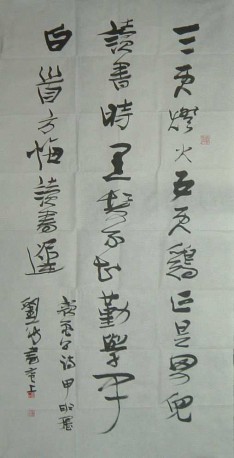 三更燈火五更鷄正是男兒
讀書時黑髮不知勤學早
白首方悔讀書遲
公詩甲申
劉 書